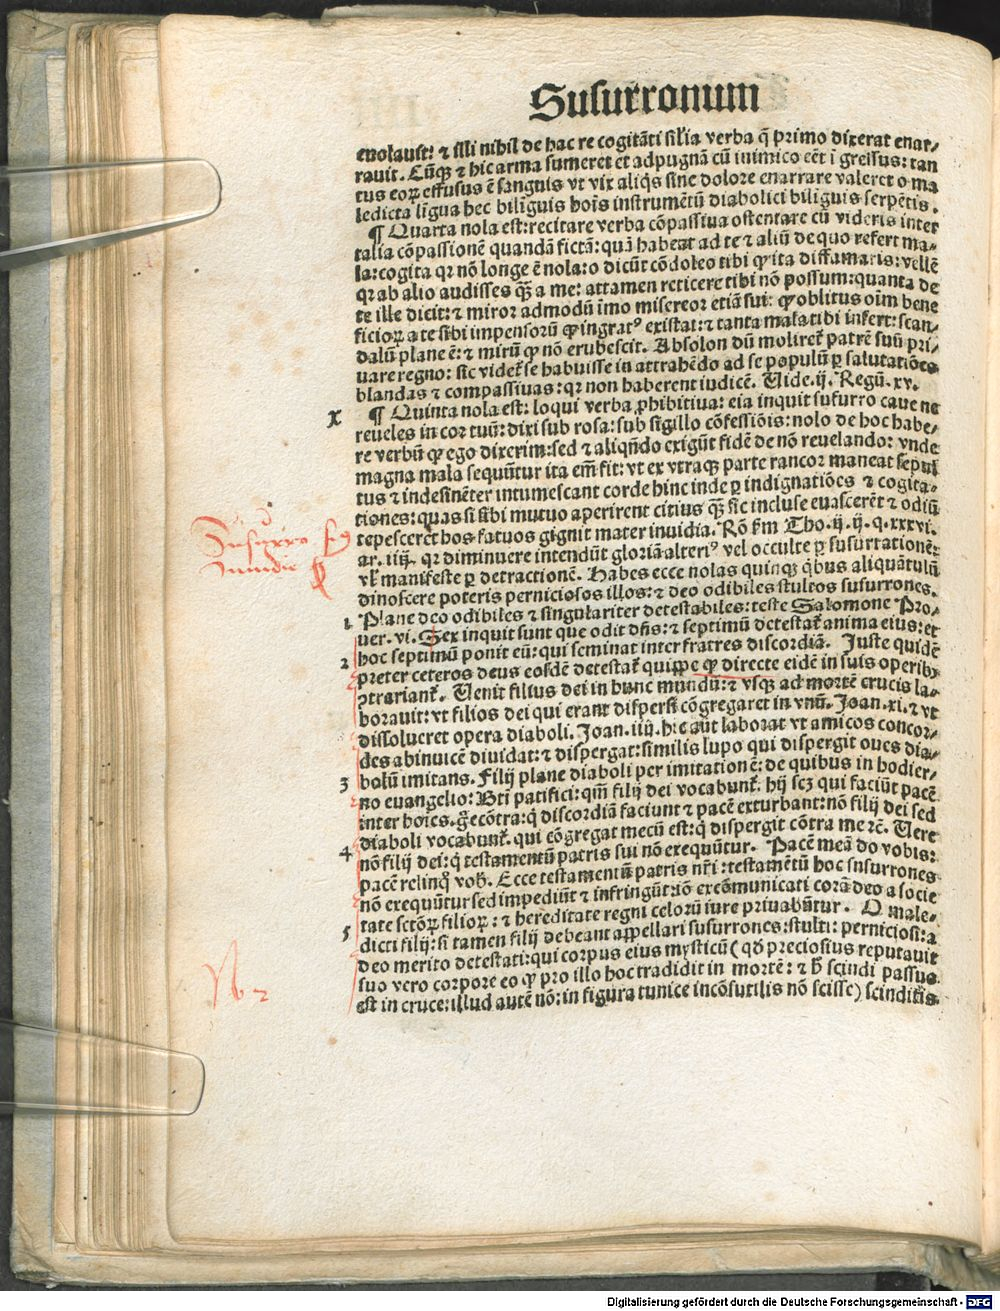 Susurronum
euolauit: ⁊ illi nihil de hac re cogitāti sil'ia verba q̄ primo dixerat enar-
rauit. Cūq̨ ⁊ hic arma sumeret et ad pugnā cū inimico eēt ī gressus: tan
tus eoꝝ effusus ē sanguis vt vix aliq̇s sine dolore enarrare valeret o ma
ledicta līgua hec bilīguis hoīs instrumētū diabolici bilīguis serpētis.
¶ Quarta nola est: recitare verba cōpassiua ostentare cū videris inter
talia cōpassionē quandā fictā: quā habeat ad te ⁊ aliū de quo refert ma-
la: cogita qꝛ nō longe ē nola: o dicūt cōdoleo tibi ꝙ ita diffamaris: vellē
qꝛ ab alio audisses q̄ꝫ a me: attamen reticere tibi nō possum: quanta de
te ille dicit: ⁊ miror admodū īmo misereor etiā sui: ꝙ oblitus oīm bene
ficioꝝ a te sibi impensorū ꝙ ingratꝰ existat: ⁊ tanta mala tibi infert: scan-
dalū plane ē: ⁊ mirū ꝙ nō erubescit. Absolon dū moliret̉ patrē suū pri-
uare regno: sic videt̉ se habuisse in attrahēdo ad se populū ꝑ salutatiōes
blandas ⁊ compassiuas: qꝛ non haberent iudicē. Vide. ij. Regū. xv.
X ¶ Quinta nola est: loqui verba ꝓhibitiua: eia inquit susurro caue ne
reueles in cor tuū: dixi sub rosa: sub sigillo cōfessiōis: nolo de hoc habe-
re verbū ꝙ ego dixerim: sed ⁊ aliqn̄do exigūt fidē de nō reuelando: vnde
magna mala sequūtur ita em̄ fit: vt ex vtraq̨ parte rancor maneat sepul
tus ⁊ indesinēter intumescant corde hinc inde ꝑ indignatiōes ⁊ cogita-
tiones: quas si sibi mutuo aperirent citius q̄ꝫ sic incluse euascerēt ⁊ odiū
tepesceret hos fatuos gignit mater inuidia. Rō fm Tho. ij. ij. q. xxxvi.
ar. iiij. qꝛ diminuere intendūt gloriā alteriꝰ vel occulte ꝑ susurrationē:
vl' manifeste ꝑ detractionē. Habes ecce nolas quinq̨ q̇bus aliquātulū
dinoscere poteris perniciosos illos: ⁊ deo odibiles stultos susurrones.
1 Plane deo odibiles ⁊ singulariter detestabiles: teste Salomone Pro-
uer. vi. Sex inquit sunt que odit dn̄s: ⁊ septimū detestat̉ anima eius: et
2 hoc septimū ponit eū: qui seminat inter fratres discordiā. Juste quidē
preter ceteros deus eosdē detestat̉ quippe ꝙ directe eidē in suis operibꝫ
ꝯtrariant̉. Venit filius dei in hunc mundū: ⁊ vsq̨ ad mortē crucis la-
borauit: vt filios dei qui erant dispersi cōgregaret in vnū. Joan. xi. ⁊ vt
dissolueret opera diaboli. Joan. iiij. hic aūt laborat vt amicos concor-
des abinuicē diuidat: ⁊ dispergat: similis lupo qui dispergit oues dia-
3 bolū imitans. Filij plane diaboli per imitationē: de quibus in hodier-
no euangelio: Bt̄i pacifici: qm̄ filij dei vocabunt̉. hij scꝫ qui faciūt pacē
inter hoīes. g̊ ecōtra: q̇ discordiā faciunt ⁊ pacē exturbant: nō filij dei sed
diaboli vocabunt̉. qui cōgregat mecū est: q̇ dispergit cōtra me ⁊c̄. Vere
4 nō filij dei: q̇ testamentū patris sui nō exequūtur. Pacē meā do vobis:
pacē relinq̊ vob̄. Ecce testamentū patris nr̄i: testamētū hoc susurrones
nō exequūtur sed impediūt ⁊ infringūt: iō excōmunicati corā deo a socie
tate sctōꝝ filioꝝ: ⁊ hereditate regni celorū iure priuabūtur. O male-
5 dicti filij: si tamen filij debeant appellari susurrones: stulti: perniciosi: a
deo merito detestati: qui corpus eius mysticū (qd̄ preciosius reputauit
suo vero corpore eo ꝙ pro illo hoc tradidit in mortē: ⁊ h̄ scindi passus
est in cruce: illud autē nō: in figura tunice incōsutilis nō scisse) scinditis
Susurro
Inuidie
Nb 2
Digitalisierung gefördert durch die Deutsche Forschungsgemeinschaft - DFG